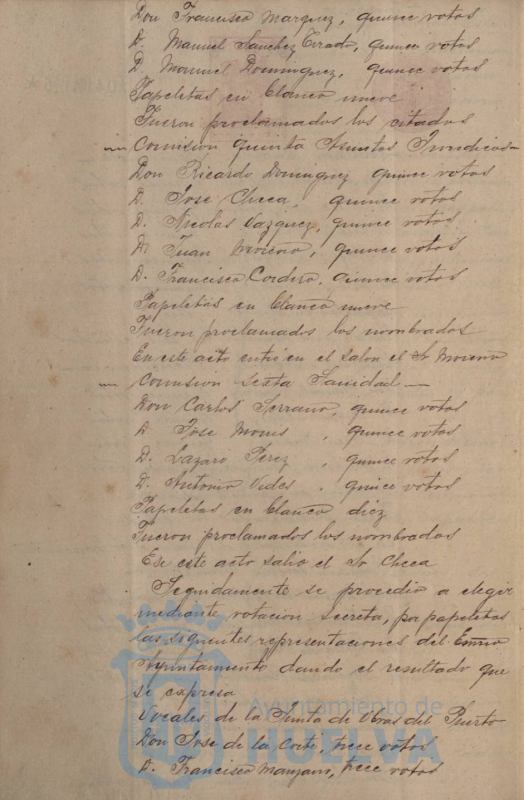 Don Francisco Marquez, quince votos
D. Manuel Sanchez Tirado, quince votos
D. Manuel Dominguez, quince votos
Papeletas en blanco nueve
Fueron proclamados los citados
Comision quinta Asuntos Juridicos
Don Ricardo Dominguez quince votos
D. Jose Checa, quince votos
D. Nicolas Vazquez, quince votos
D. Juan Moreno, quince votos
D. Francisco Cordero, quince votos
Papeletas en blanco nueve
Fueron proclamados los nombrados
En este acto entró en el salon el Sr Moreno
Comision sexta Sanidad
Don Carlos Serrano, quince votos
D. Jose Monis, quince votos
D. Lazaro Perez, quince votos
D. Antonio Vides, quince votos
Papeletas en blanco diez
Fueron proclamados los nombrados
En este acto salio el Sr Checa
Seguidamente se procedio a elegir
mediante votacion secreta, por papeletas
las siguientes representaciones del Excmo
Ayuntamiento dando el resultado que
se expresa
Vocales de la Junta de Obras del Puerto
Don Jose de la Corte, trece votos
D. Francisco Manzano, trece votos
Ayuntamiento de
HUELVA